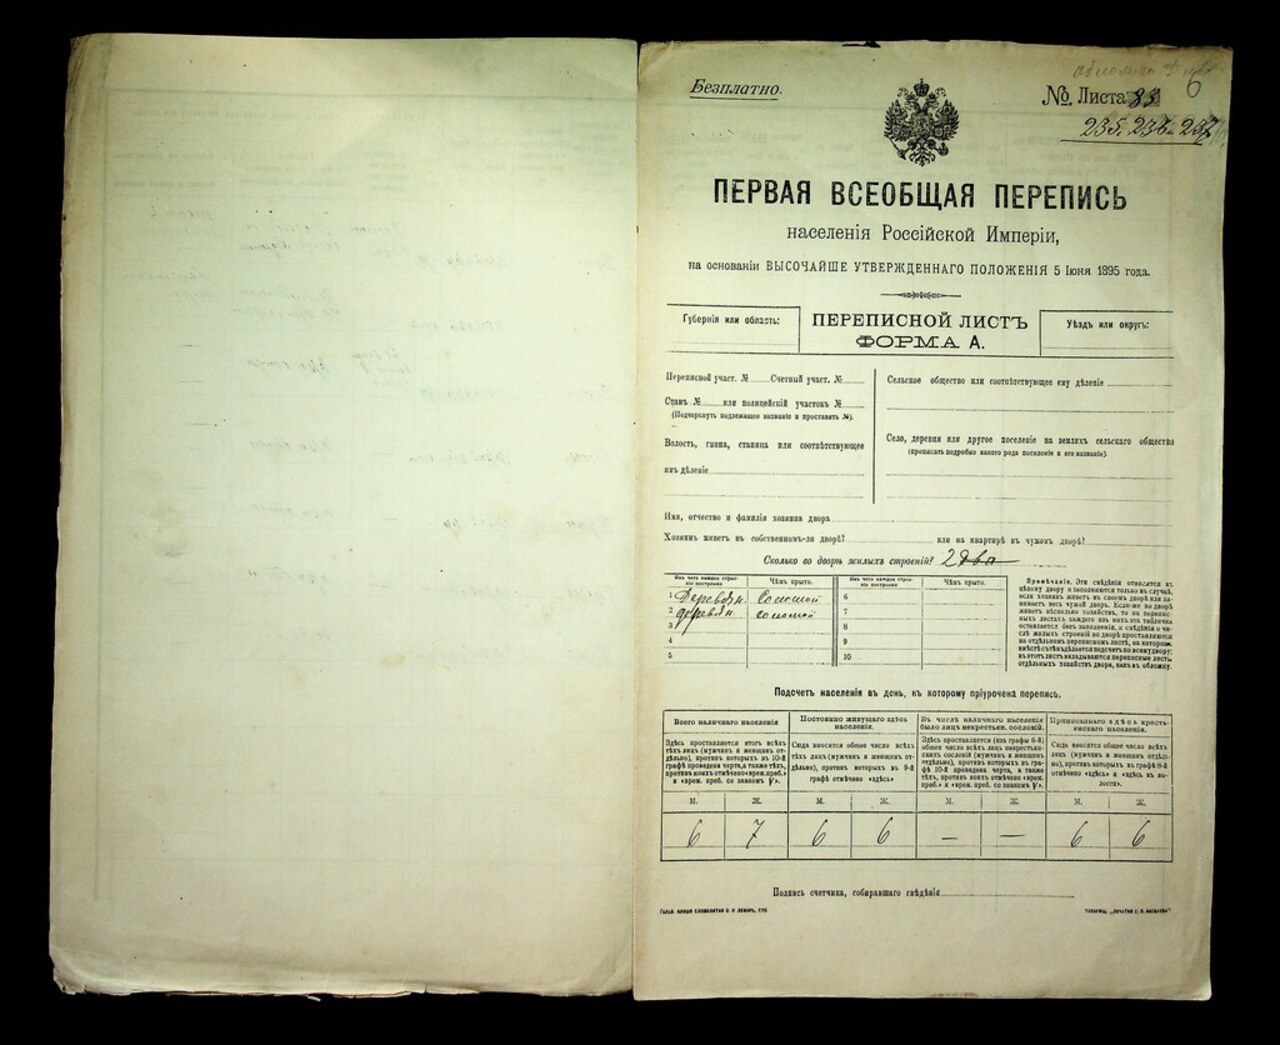 Безплатно.
№. Листа 83
6
235. 236 и 237
ПЕРВАЯ ВСЕОБЩАЯ ПЕРЕПИСЬ
населенія Россійской Имперіи,
на основаніи ВЫСОЧАЙШЕ УТВЕРЖДЕННАГО ПОЛОЖЕНІЯ 5 Іюня 1895 года.
Губернія или область:
ПЕРЕПИСНОЙ ЛИСТЪ
ФОРМА А.
Уѣздъ или округъ:
Переписной участ. № Счетный участ. №
Станъ № или полицейскій участокъ №
(Подчеркнуть подлежащее названіе и проставить №).
Волость, гмина, станица или соотвѣтствующее
имъ дѣленіе
Сельское общество или соотвѣтствующее ему дѣленіе
Село, деревня или другое поселеніе на земляхъ сельскаго общества
(прописать подробно какого рода поселеніе и его названіе).
Имя, отчество и фамилія хозяина двора
Хозяинъ живетъ въ собственномъ-ли дворѣ? или на квартирѣ въ чужомъ дворѣ?
Сколько во дворѣ жилыхъ строеній? 2 два
Изъ чего каждое строе-
ніе построено
Чѣмъ крыто.
Изъ чего каждое строе-
ніе построено
Чѣмъ крыто.
1 Деревян. Соломой
2 деревян. соломой
3
4
5
6
7
8
9
10
Примѣчаніе. Эти свѣдѣнія относятся къ
цѣлому двору и заполняются только въ случаѣ,
если хозяинъ живетъ въ своемъ дворѣ или за-
нимаетъ весь чужой дворъ. Если-же во дворѣ
живетъ нѣсколько хозяйствъ, то на перепис-
ныхъ листахъ каждаго изъ нихъ эта табличка
оставляется безъ заполненія, а свѣдѣнія о чи-
слѣ жилыхъ строеній во дворѣ проставляются
на отдѣльномъ переписномъ листѣ, на которомъ
вмѣстѣ съ тѣмъ дѣлается подсчетъ по всему двору;
въ этотъ листъ вкладываются переписные листы
отдѣльныхъ хозяйствъ двора, какъ въ обложку.
Подсчетъ населенія въ день, къ которому пріурочена перепись.
Всего наличнаго населенія
Здѣсь проставляется итогъ всѣхъ
тѣхъ лицъ (мужчинъ и женщинъ от-
дѣльно), противъ которыхъ въ 10-й
графѣ проведена черта, а также тѣхъ,
противъ коихъ отмѣчено «врем. преб.»
и «врем. преб. со знакомъ V».
Постоянно живущаго здѣсь
населенія.
Сюда вносится общее число всѣхъ
тѣхъ лицъ (мужчинъ и женщинъ от-
дѣльно), противъ которыхъ въ 9-й
графѣ отмѣчено «здѣсь»
Въ числѣ наличнаго населенія
было лицъ некрестьян. сословій.
Здѣсь проставляется (изъ графы 6-й)
общее число всѣхъ лицъ некрестьян-
скихъ сословій (мужчинъ и женщинъ
отдѣльно), противъ которыхъ въ гра-
фѣ 10-й проведена черта, а также
тѣхъ, противъ коихъ отмѣчено «врем.
преб.» и «врем. преб. со знакомъ V».
Приписаннаго здѣсь кресть-
янскаго населенія.
Сюда вносится общее число всѣхъ
тѣхъ лицъ (мужчинъ и женщинъ отдѣль-
но), противъ которыхъ въ графѣ 8-й
отмѣчено «здѣсь» и «здѣсь въ во-
лости».
М. Ж. М. Ж. М. Ж. М. Ж.
6 7 6 6 — — 6 6
Подпись счетчика, собиравшаго свѣдѣнія